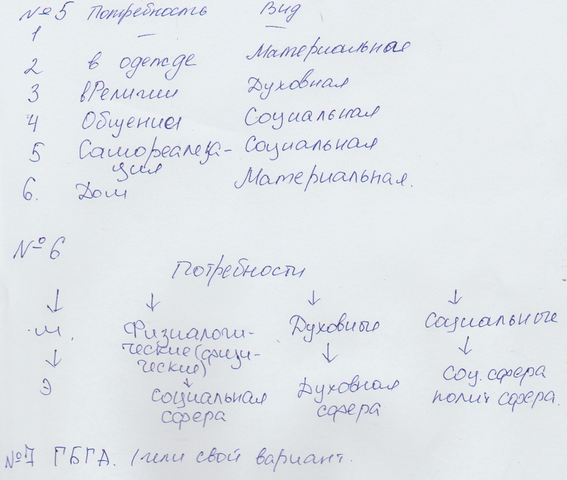 №5 Потребность Вид
1 — —
2 в одежде Материальная
3 вРелигии Духовная
4 Общении Социальная
5 Самореализа- Социальная
ция
6. Дом Материальная.
№6
Потребности
↓ ↓ ↓ ↓
м. Физиалоги- Духовные Социальные
ческие (физи-
ческие)
↓ ↓ ↓ ↓
Э Социальная Духовная Соц. сфера
сфера сфера полит сфера.
№7 ГБГА. /или свой вариант.